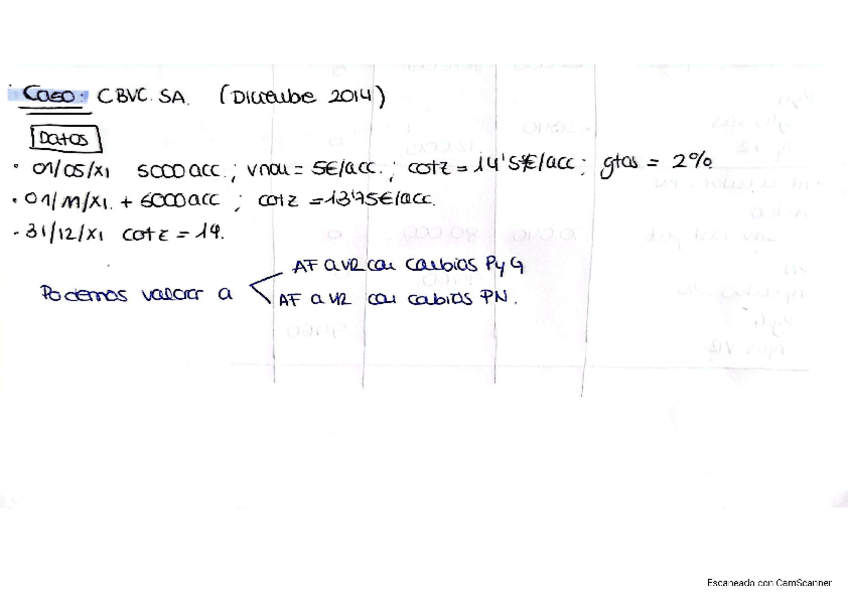 Caso: CBVC. SA. (Diciembre 2014)
Datos
· 01/05/X1 5000 acc.; Vnou = 5€/acc.; cotz = 14'5€/acc; gtos = 2%
· 01/11/X1. + 6000 acc ; cotz = 13'75€/acc.
- 31/12/X1 cotz = 14.
AF a VR con cambios PyG
Podemos valorar a
AF a VR con cabios PN.
Escaneado con CamScanner